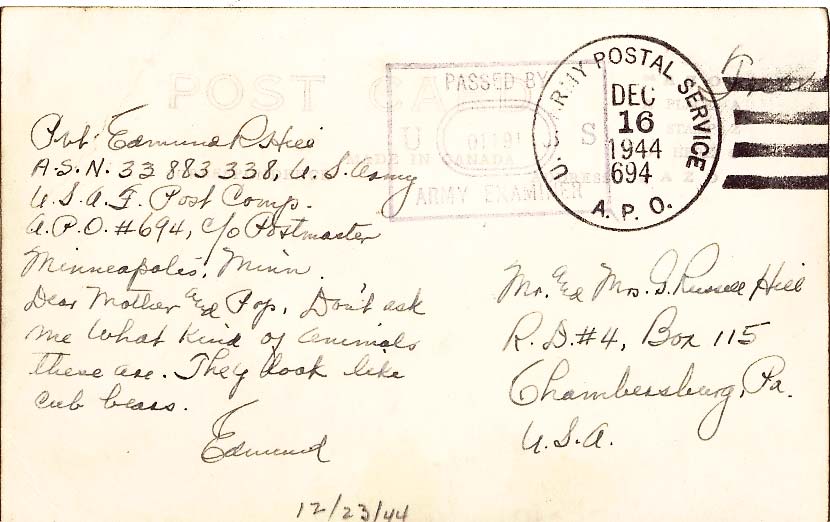 POST CA
PASSED BY
U S
01191
ARMY EXAMINER
MADE IN CANADA
U.S. ARMY POSTAL SERVICE
DEC
16
1944
694
A.P.O.
Free
Pvt. Edmund R Hill
A.S.N. 33 883 338, U.S. Army
U.S.A.F. Post Comp.
A.P.O. #694, c/o Postmaster
Minneapolis, Minn.
Dear Mother and Pop, Don't ask
me what kind of animals
these are. They look like
cub bears.
Edmund
Mr. and Mrs. G. Russell Hill
R.D. #4, Box 115
Chambersburg, Pa.
U.S.A.
12/23/44